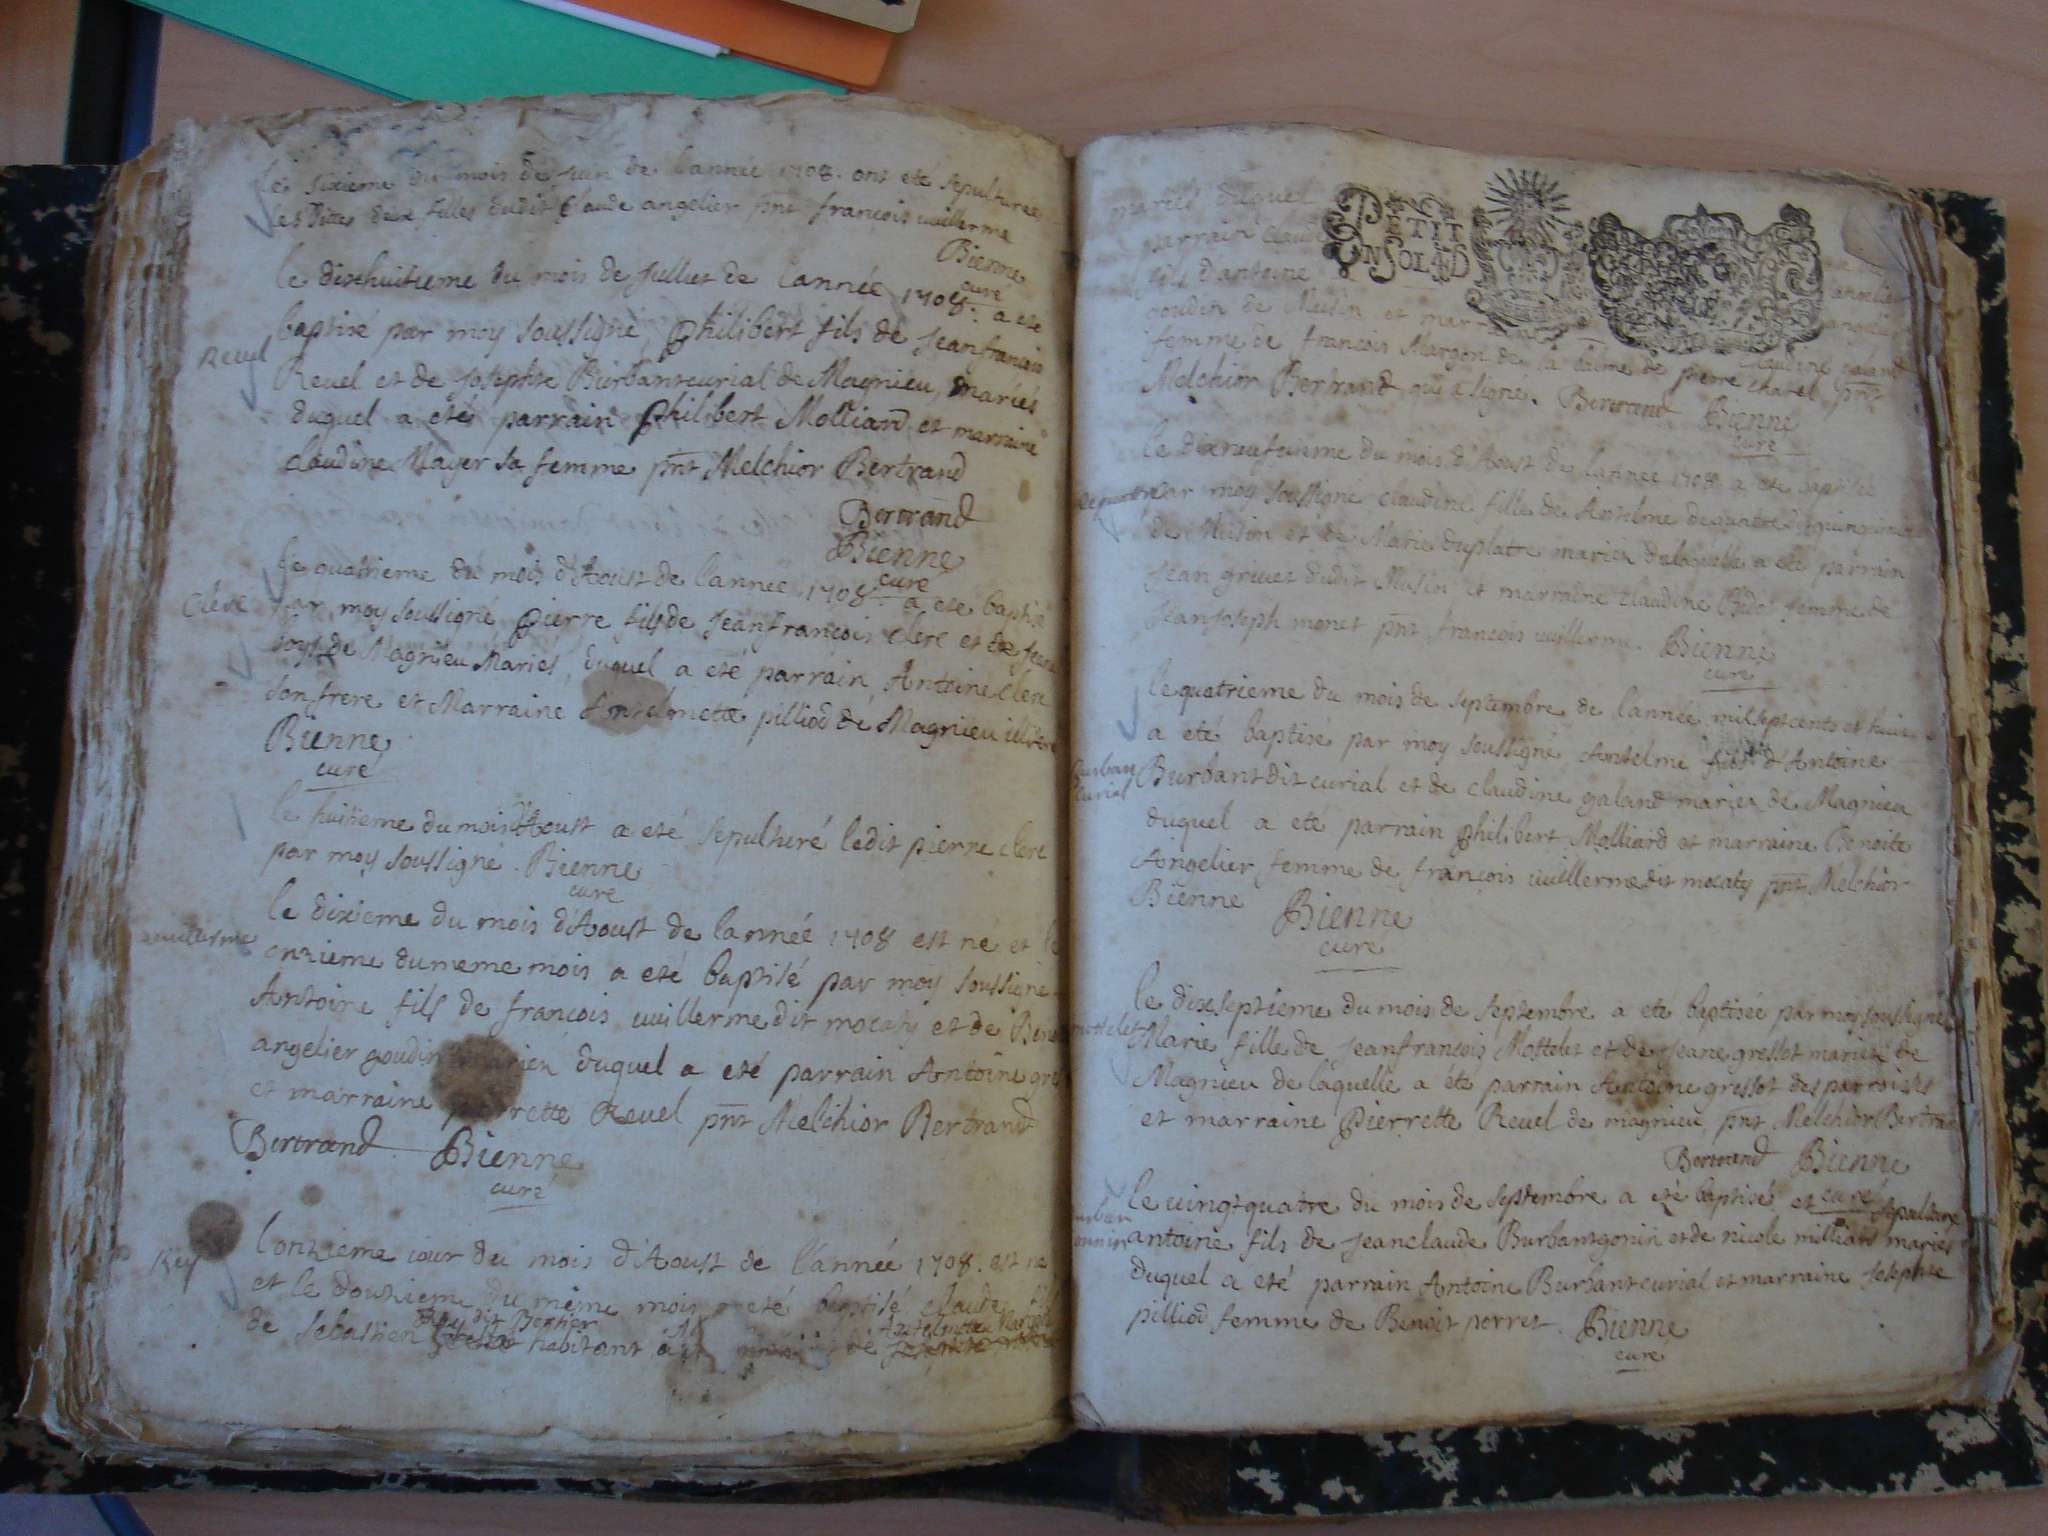 le sixieme du mois de juin de l'année 1708. ont eté sepulturées
les dittes deux filles dudit Claude angelier pnt françois vuillerme
Bienne
curé
le dixhuitieme du mois de Jullet de l'année 1708. a eté
Revel
baptisé par moy soussigné Philibert fils de Jeanfrancois
Revel et de Josephte Burbanteurial de Magnieu, mariés
duquel a etés parrain Philibert Molliard et marraine
claudine Mayer sa femme pnt Melchior Bertrand
Bertrand
Bienne
curé
le quatrieme du mois d'Aoust de l'année 1708. a eté baptisé
Clere
par moy soussigné Pierre fils de Jeanfrancois clere et de
de Magnieu Mariés, duquel a eté parrain Antoine clere
son frere et Marraine Antelmette pilliod de Magnieu
Bienne
curé
le huitieme du mois d'Aoust a eté sepulturé ledit pierre clere
par moy soussigné. Bienne
curé
le dixieme du mois d'Aoust de l'année 1708 est né et le
vuillerme
onzieme du meme mois a eté baptisé par moy soussigné
Antoine fils de françois vuillerme dit mocaty et de
angelier goudin duquel a eté parrain Antoine
et marraine Revel pnt Melchior Bertrand
Bertrand Bienne
curé
Rey
l'onzieme iour du mois d'Aoust de l'année 1708. est né
et le douzieme du même mois a eté baptisé claude fils
Rey dit Bertier Antelmette
de Sebastien habitant a de
mariés duquel
PETIT
parrain Claude
EN SOL 4 D
fils d'antoine angelier
goudin de Musin et angelier
femme de françois Margon de la balme de pierre chatel pnt claudine galand
Melchior Bertrand qui a signé. Bertrand Bienne
curé
le dixneufuieme du mois d'Aoust de l'année 1708 a eté baptisée
dequatre
par moy soussigné claudine fille de Antelme dequatre
de Musin et de Marie duplatre mariez delaquelle a eté parrain
Jean griuet dudit Musin et marraine claudine Bidot femme de
Jeanjoseph monet pnt françois vuillerme. Bienne
curé
le quatrieme du mois de septembre de l'année mil sept cents et huit
a eté baptisé par moy soussigné Antelme fils d'Antoine
Burban
curial
Burbant dit curial et de claudine galand mariez de Magnieu
duquel a eté parrain Philibert Molliard et marraine Benoite
Angelier femme de françois vuillerme dit mocaty pnt Melchior
Bienne Bienne
curé
le dixseptieme du mois de septembre a eté baptisée par moy soussigné
mottelet
Marie fille de Jeanfrancois Mottelet et de Jeane gressot mariez de
Magnieu de laquelle a été parrain Antoine gressot des parroisses
et marraine Pierrette Revel de magnieu pnt Melchior Bertrand
Bertrand Bienne
curé
le vingtquatre du mois de septembre a eté baptisé et sepulturé
antoine fils de Jeanclaude Burbantgonin et de nicole milliars mariés
duquel a eté parrain Antoine Burbanteurial et marraine Josephte
pilliod femme de Benoit perret. Bienne
curé